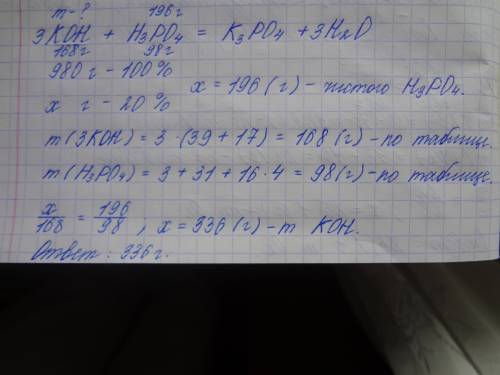 m - ?      196 г
3KOH + H₃PO₄ = K₃PO₄ + 3H₂O
168 г      98 г
980 г - 100 %
x = 196 (г) - чистого H₃PO₄.
x г - 20 %
m (3KOH) = 3 · (39 + 17) = 168 (г) - по таблице.
m (H₃PO₄) = 3 + 31 + 16 · 4 = 98 (г) - по таблице.
x/168 = 196/98 ; x = 336 (г) - m KOH.
Ответ: 336 г.